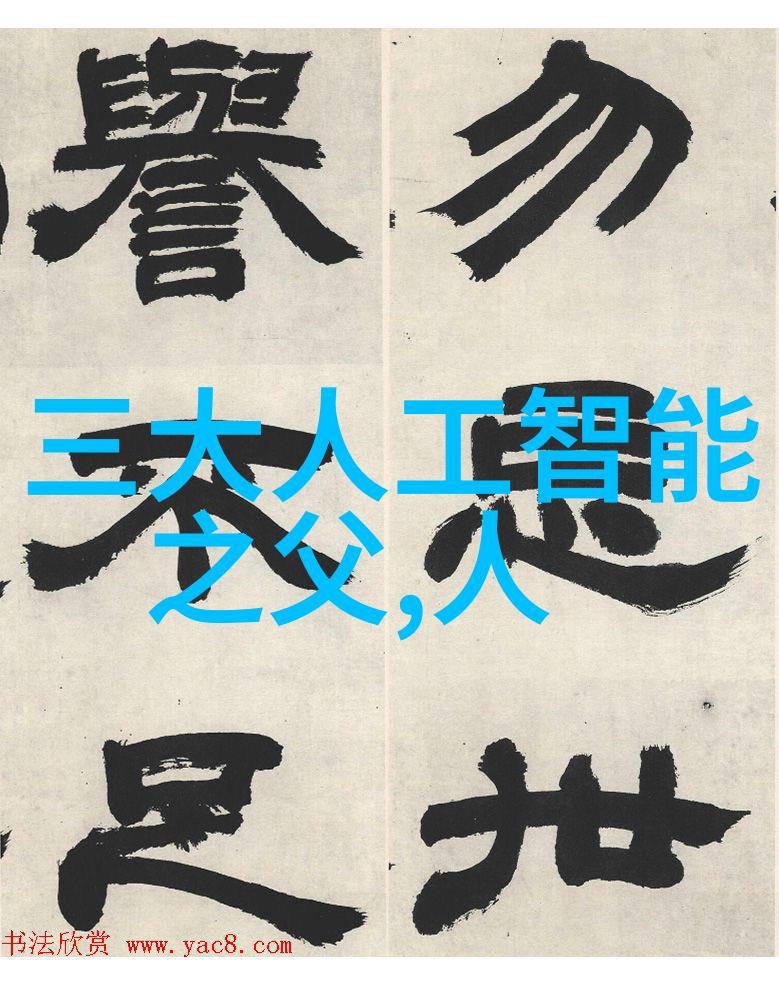 勿忘世
譽不足
三大人工智能
之父,人
书法欣赏 www.yac8.com